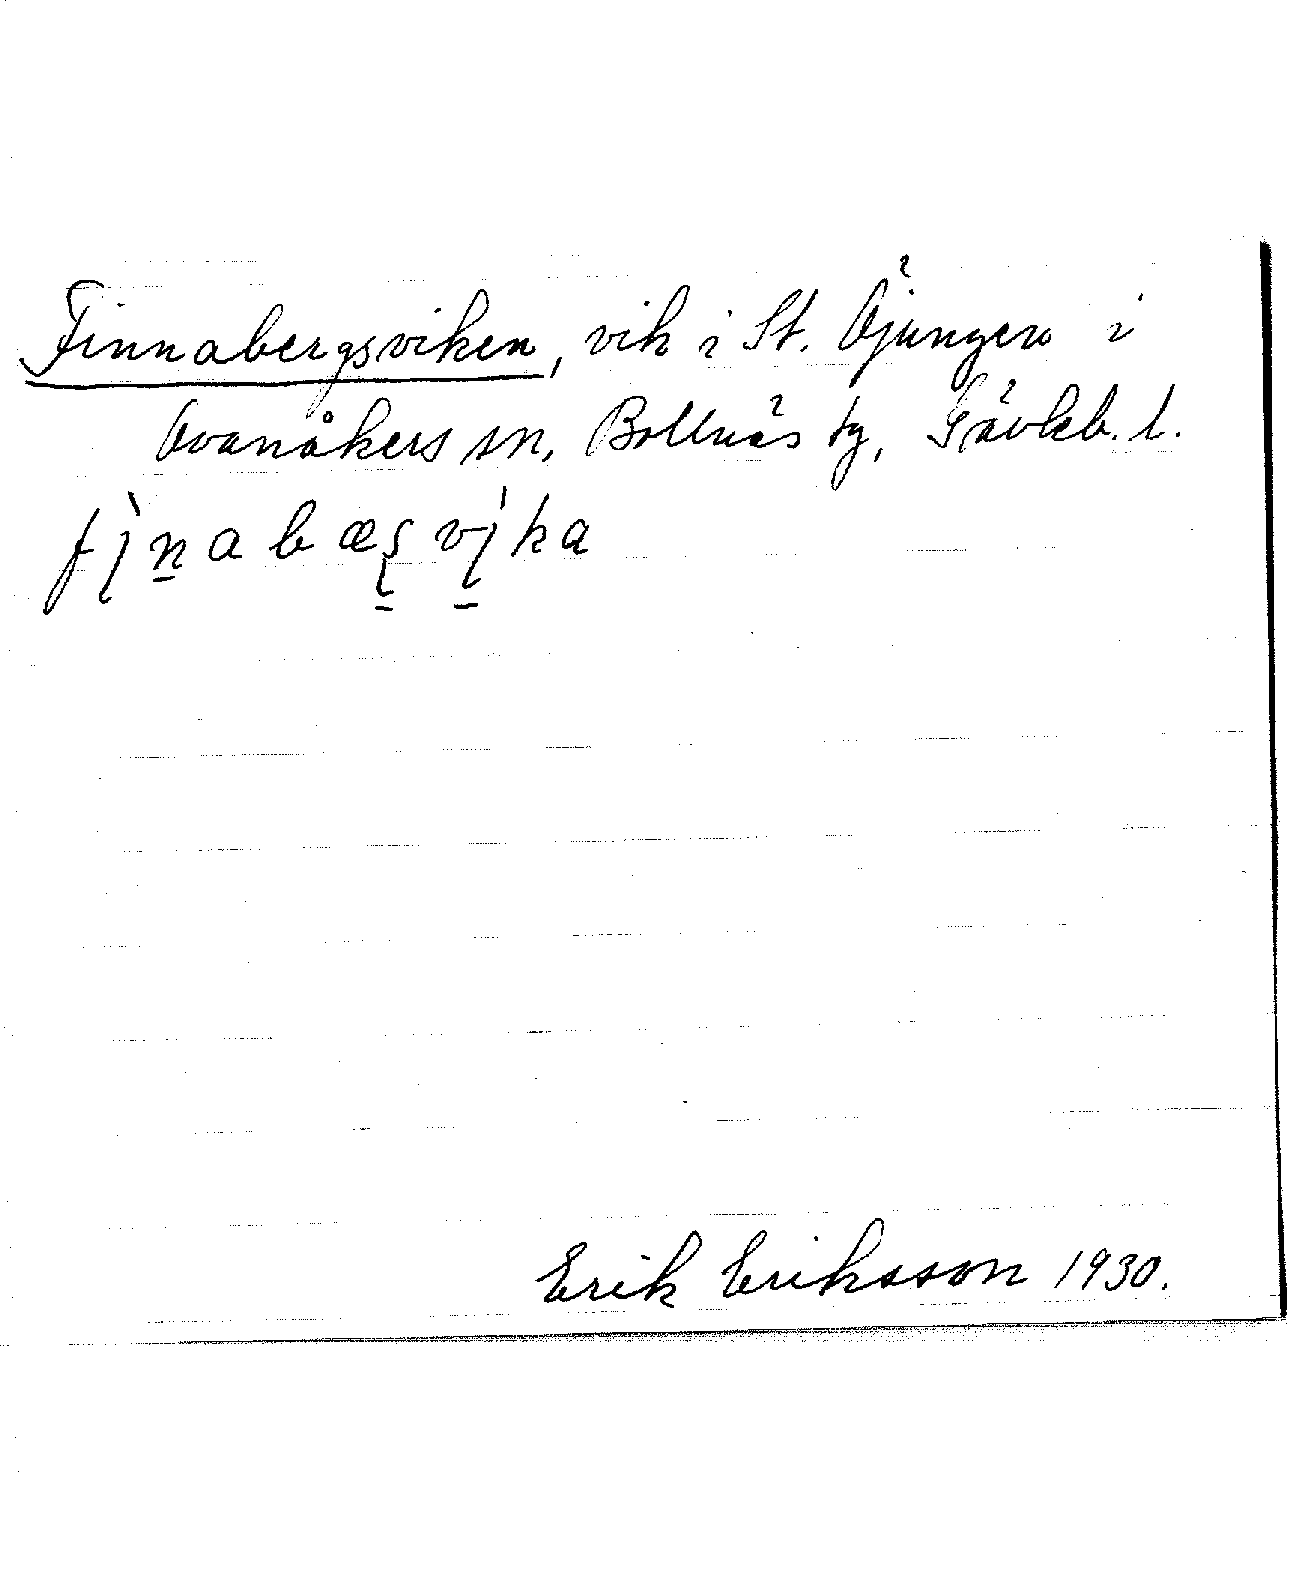 Finnabergsviken, vik i St. Öjungen i
Ovanåkers sn, Bollnäs tg, Gävleb. l.
Erik Eriksson 1930.